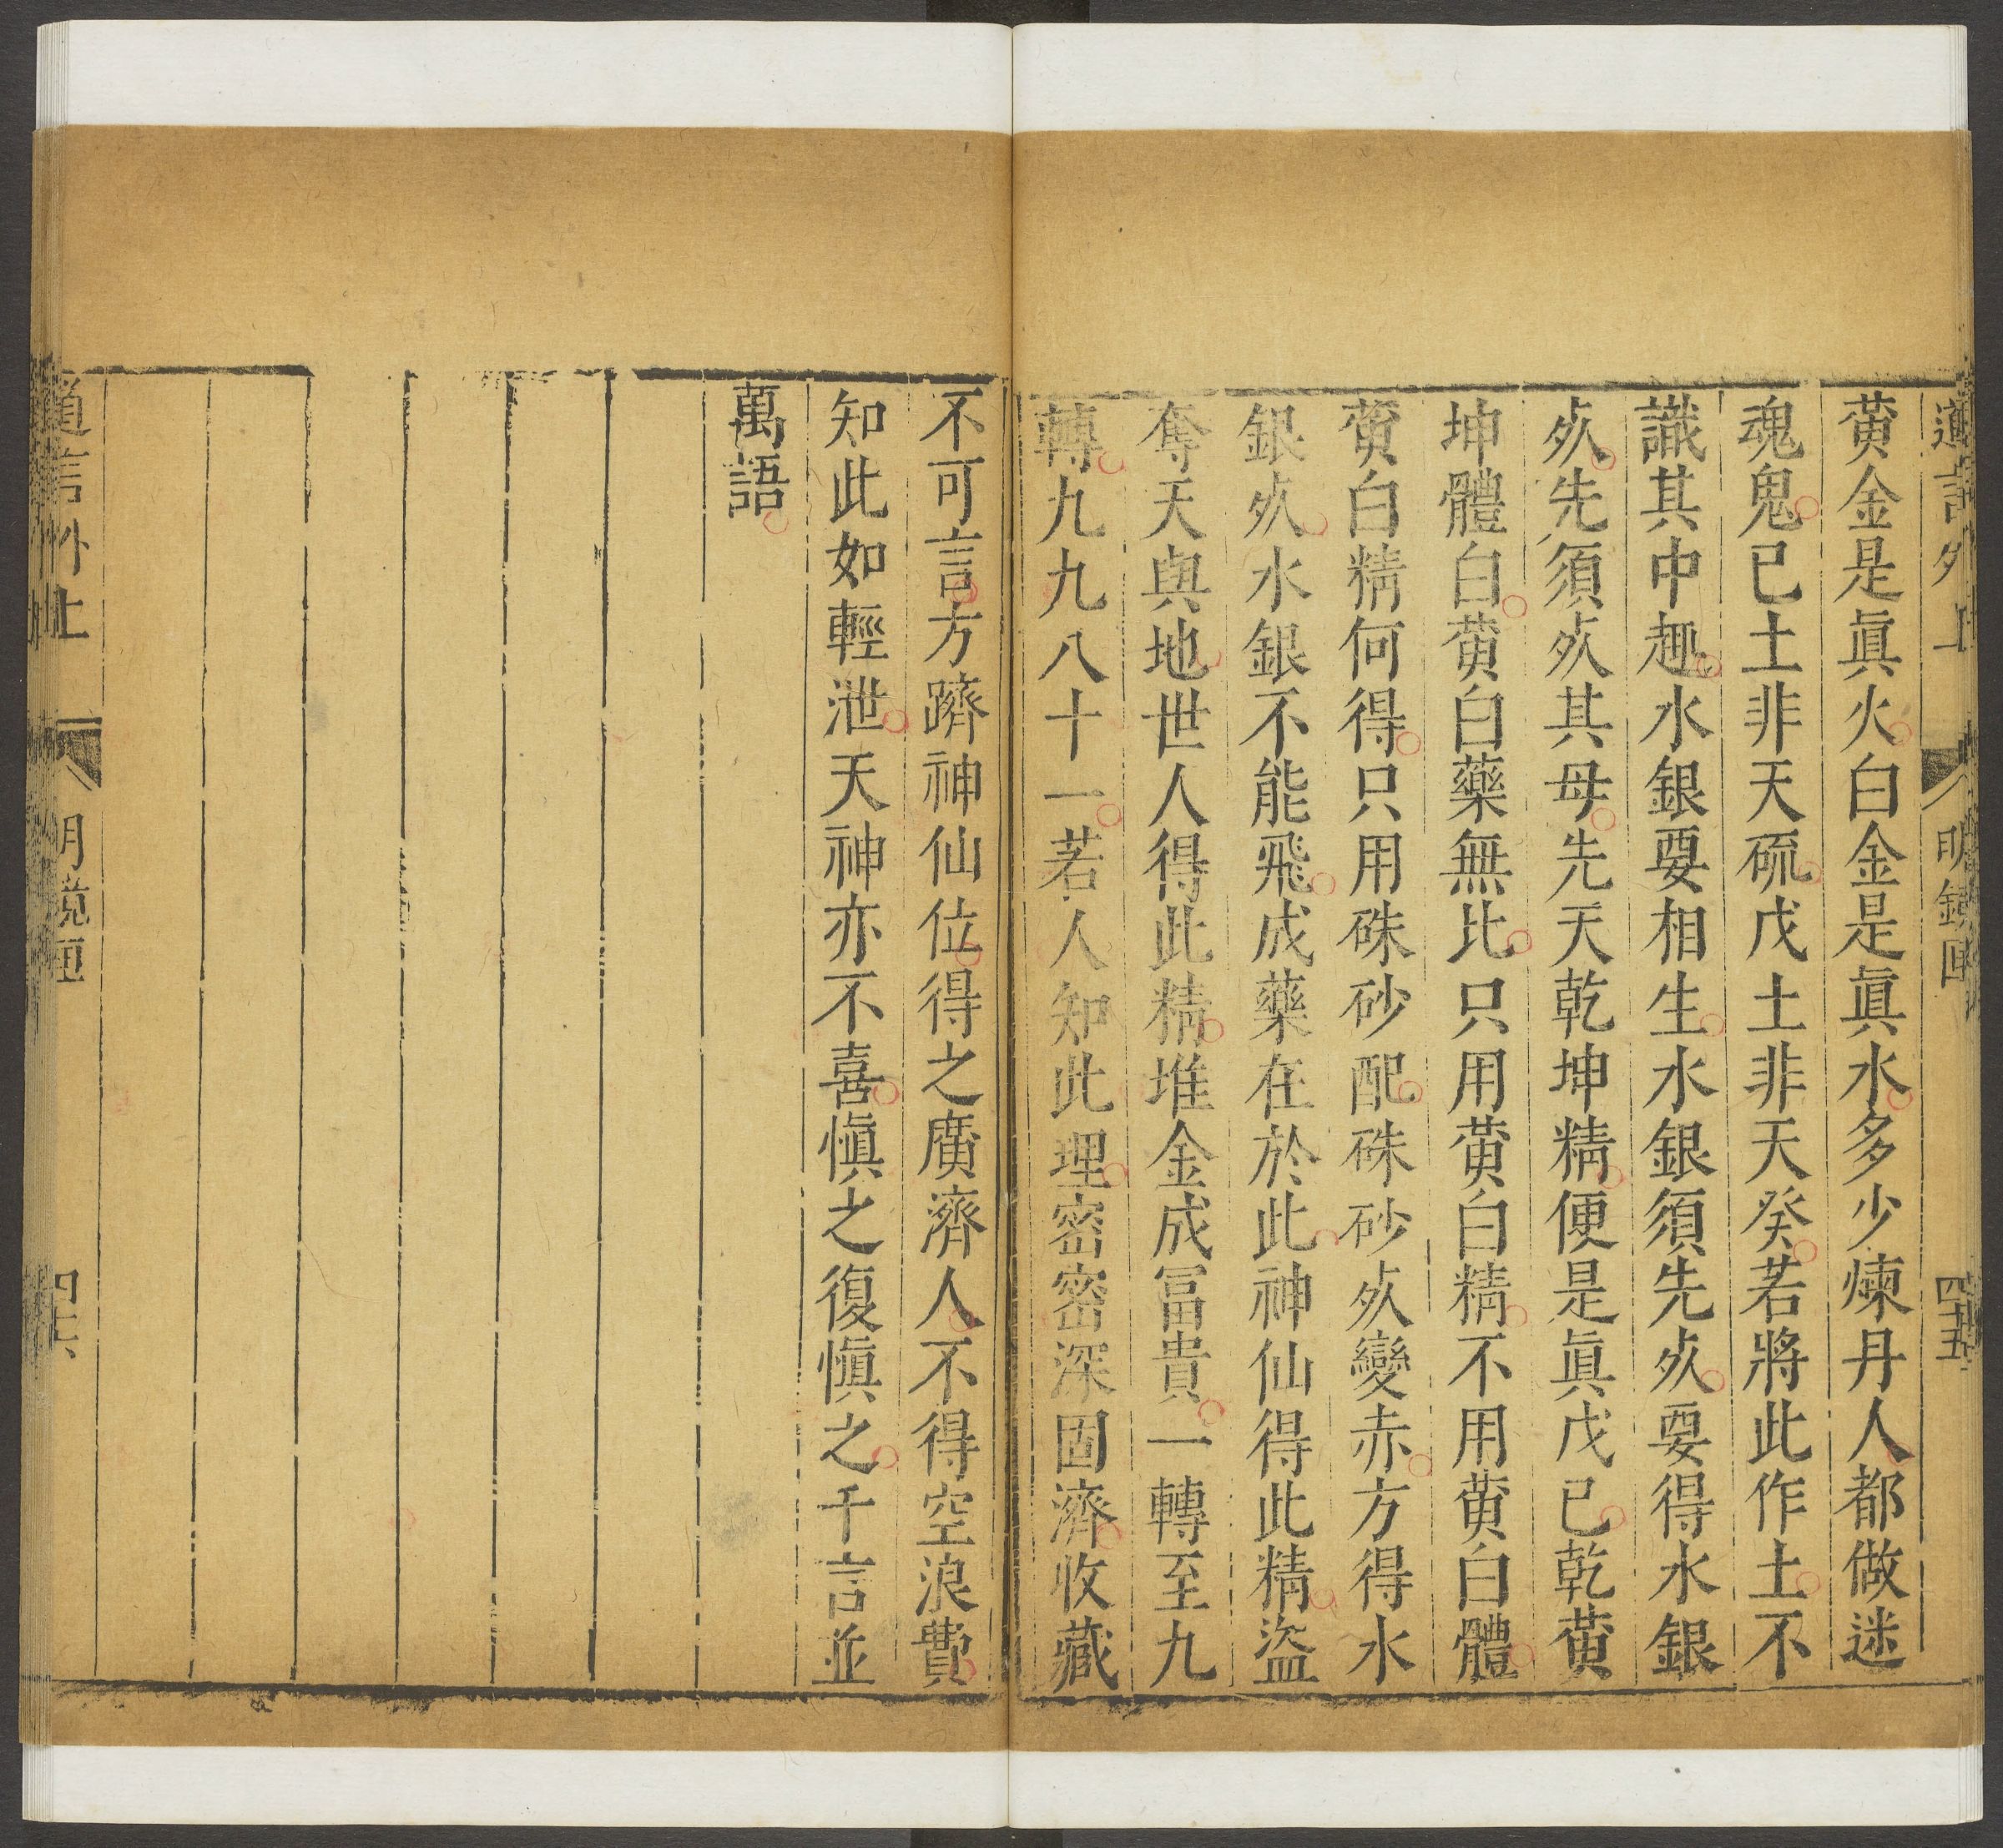 道言外上 明鏡匣 四十五
黄金是眞火白金是眞水多少煉丹人都做迷
魂鬼已土非天硫戊土非天癸若將此作土不
識其中趣水銀要相生水銀須先死要得水銀
死先須死其母先天乾坤精便是眞戊已乾黄
坤體白黄白藥無比只用黄白精不用黄白體
黄白精何得只用硃砂配硃砂死變赤方得水
銀死水銀不能飛成藥在於此神仙得此精盜
奪天與地世人得此精堆金成冨貴一轉至九
轉九九八十一若人知此理密密深固濟收藏
不可言方躋神仙位得之廣濟人不得空浪費
知此如輕泄天神亦不喜愼之復愼之千言並
萬語
道言外上 明鏡匣 四十六